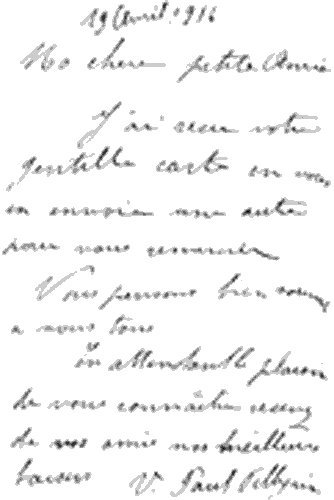 19 Avril 1916
Ma chère petite Amie
J'ai reçu votre
gentille carte en vous
en envoie une autre
pour vous remercier
Vous pensons bien souvent
a vous tous
En attendant le plaisir
de vous connaitre recevez
de vos amis nos meilleurs
baisers V. Paul